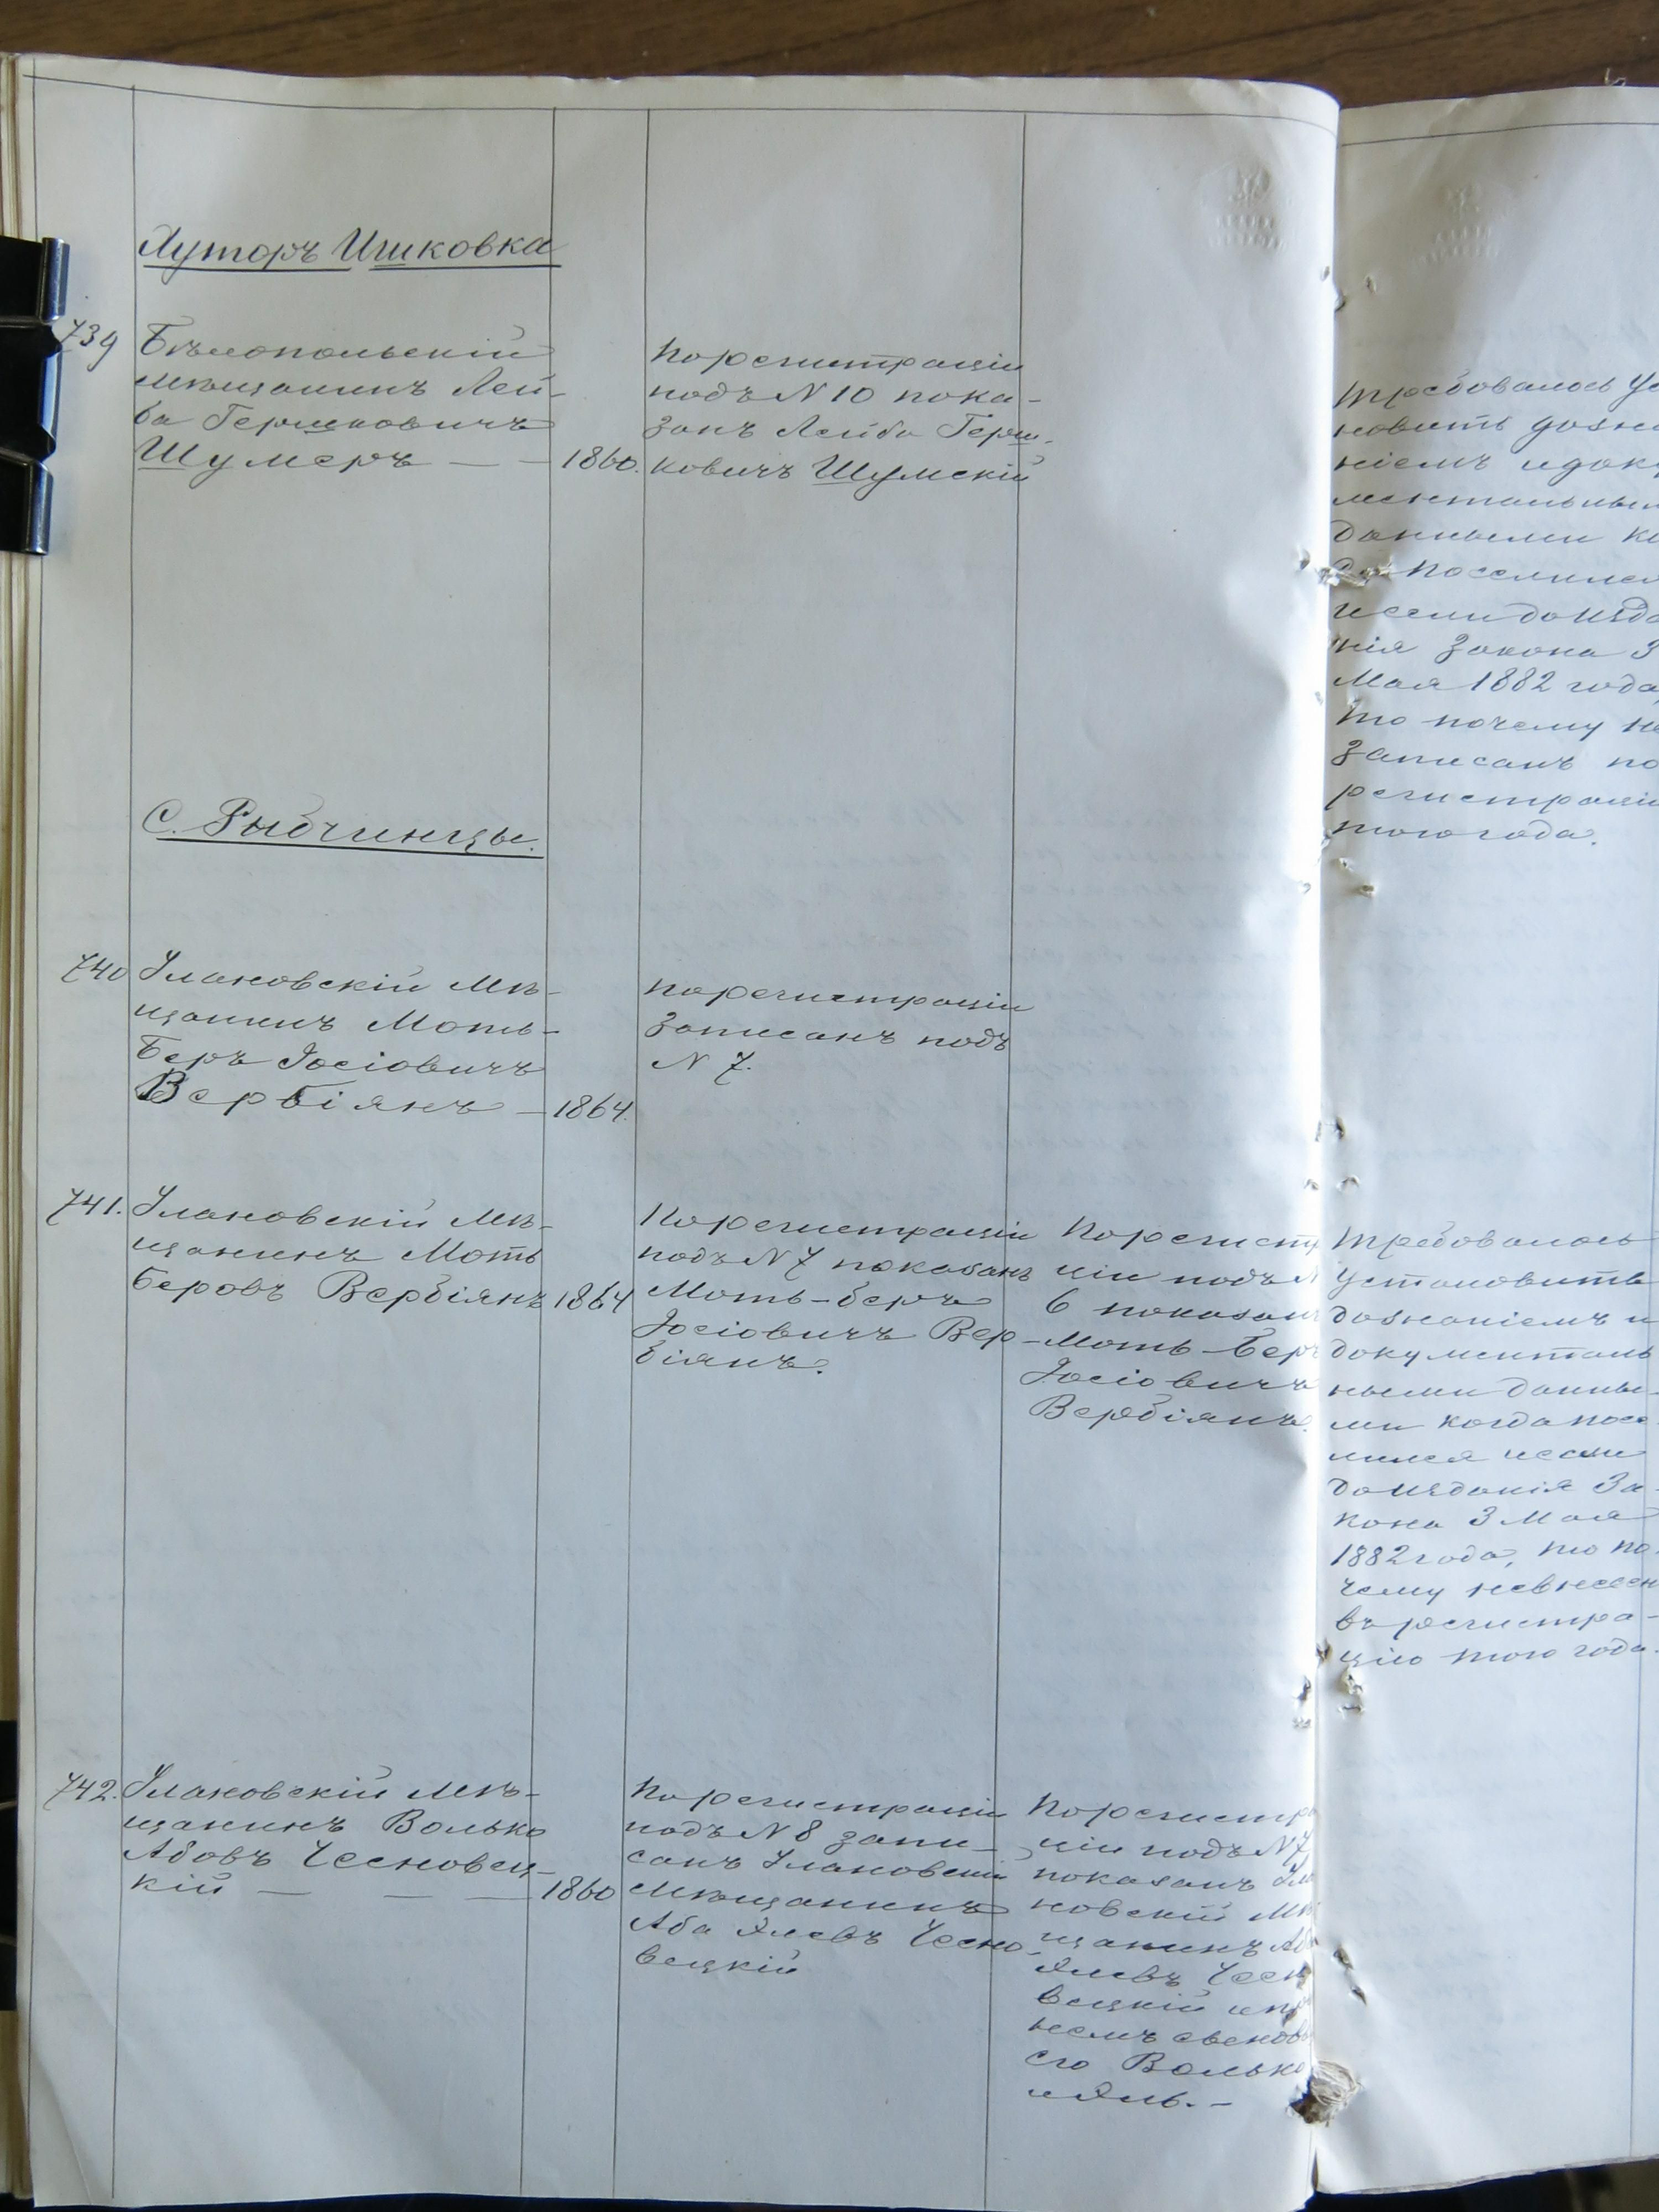 Хуторъ Ишковка
739
Бѣлопольскій
мѣщанинъ Лей-
ба Гершковичъ
Шумеръ — — 1860.
По регистраціи
подъ N 10 пока-
занъ Лейба Герш-
ковичъ Шумскій
Требовалось Ус
новить дозна
ніемъ и доку
ментальным
данными ко
поселился
и если до изда
нія закона 3
Мая 1882 года,
то почему не
записанъ по
регистраціи
того года.
С. Рыбчинцы.
740
Улановскій Мѣ-
щанинъ Моть-
Беръ Іосіовичъ
Вербіянъ — 1864.
По регистраціи
записанъ подъ
N 7.
741.
Улановскій Мѣ-
щанинъ Моть
Беровъ Вербіянъ 1864
По регистраціи
подъ N 7 показанъ
Моть-беръ
Іосіовичъ Вер-
біянъ.
По регистр
ціи подъ N
6 показан
Моть-Беръ
Іосіовичъ
Вербіянъ.
Требовалось
Установить
дознаніемъ и
документаль
ными данны-
ми когда посе
лился и если
до изданія За-
кона 3 Мая
1882 года, то по
чему невнесен
въ регистра-
цію того года.
742.
Улановскій Мѣ-
щанинъ Волько
Абовъ Чесновец-
кій — — — 1860
По регистраціи
подъ N 8 запи-
санъ Улановскій
Мѣщанинъ
Аба Элевъ Чесно-
вецкій
По регистра
ціи подъ N 7
показанъ Ула
новскій Мѣ
щанинъ Аба
Элевъ Чесн
вецкій и пр
немъ сыновья
его Волько
и Эль. —